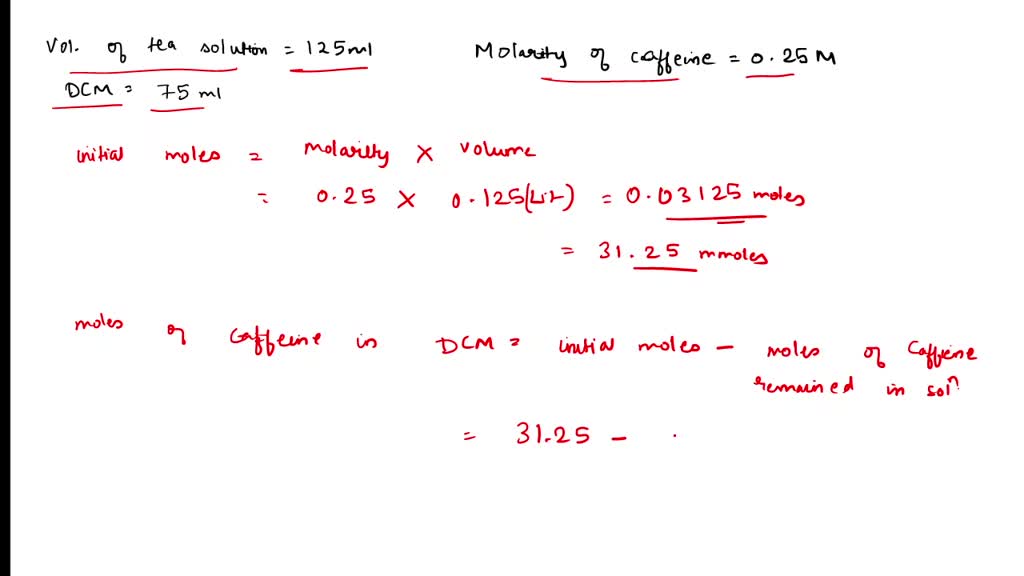 Vol. of tea solution = 125ml
Molarity of caffeine = 0.25 M
DCM = 75 ml
initial moles = molarity X volume
= 0.25 X 0.125(Lit) = 0.03125 moles
= 31.25 mmoles
moles of caffeine in DCM = initial moles - moles of caffeine
remained in solⁿ
= 31.25 -